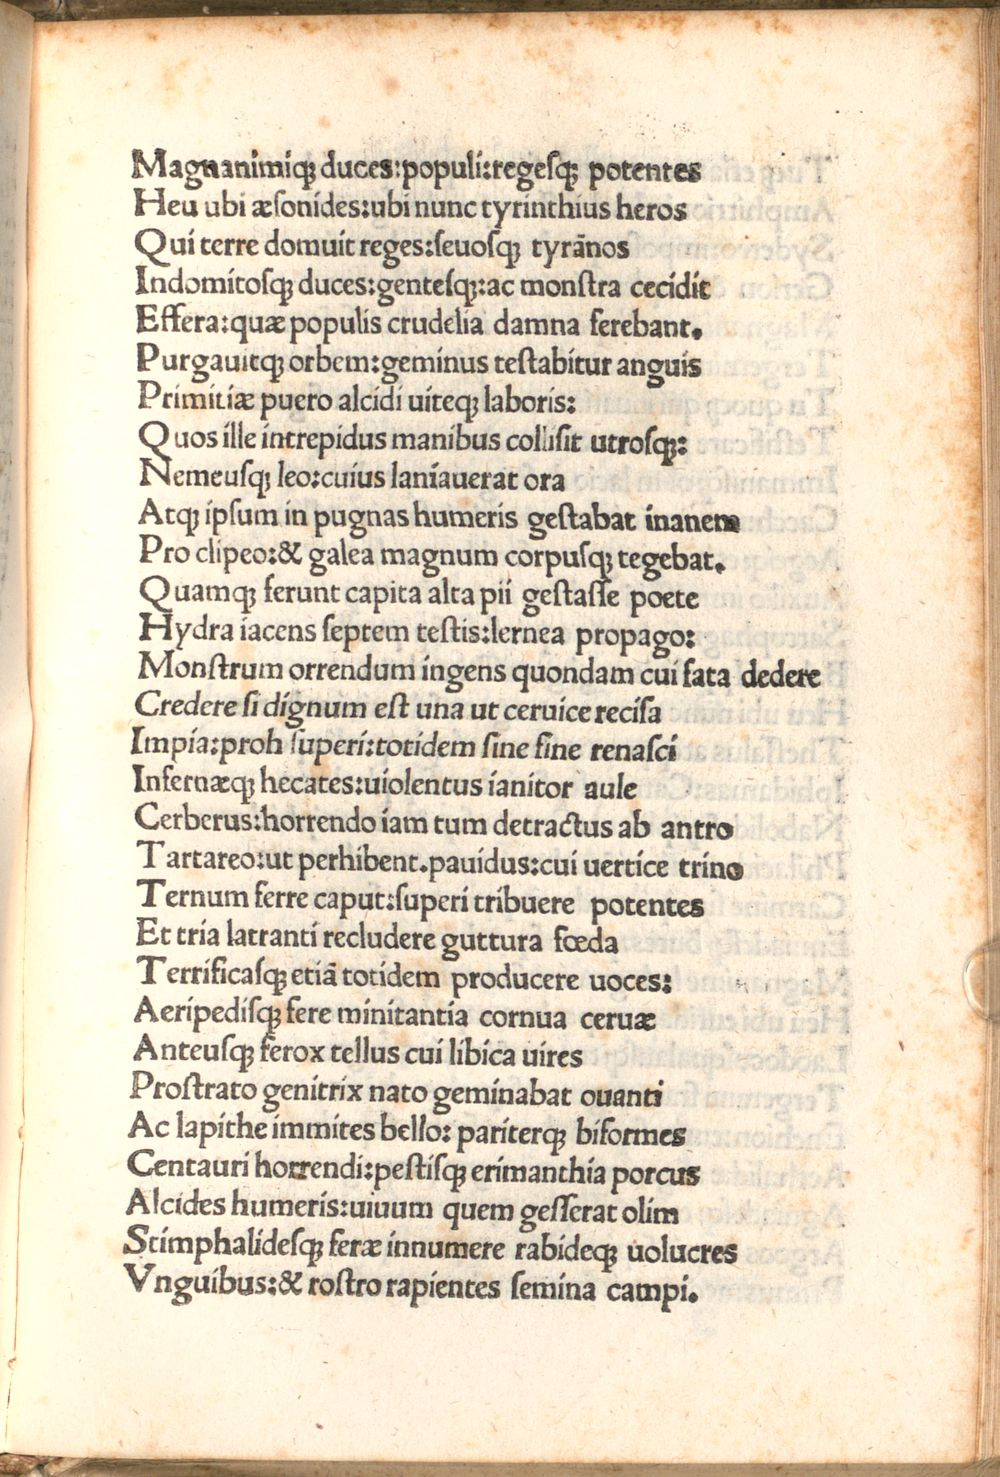 Magnanimiqꝫ duces:populi:regesqꝫ potentes
Heu ubi æsonides:ubi nunc tyrinthius heros
Qui terre domuit reges:ſeuoſqꝫ tyrānos
Indomitoſqꝫ duces:genteſqꝫ:ac monſtra cecidit
Effera:quæ populis crudelia damna ferebant.
Purgauitqꝫ orbem:geminus teſtabitur anguis
Primitiæ puero alcidi uiteqꝫ laboris:
Quos ille intrepidus manibus colliſit utroſqꝫ:
Nemeuſqꝫ leo:cuius laniauerat ora
Atqꝫ ipſum in pugnas humeris geſtabat inanem
Pro clipeo:& galea magnum corpuſqꝫ tegebat.
Quamqꝫ ferunt capita alta pii geſtaſſe poete
Hydra iacens ſeptem teſtis:lernea propago:
Monſtrum orrendum ingens quondam cui fata dedere
Credere ſi dignum eſt una ut ceruice reciſa
Impia:proh ſuperi:totidem ſine fine renaſci
Infernæqꝫ hecates:uiolentus ianitor aule
Cerberus:horrendo iam tum detractus ab antro
Tartareo:ut perhibent.pauidus:cui uertice trino
Ternum ferre caput:ſuperi tribuere potentes
Et tria latranti recludere guttura fœda
Terrificaſqꝫ etiā totidem producere uoces:
Aeripediſqꝫ fere minitantia cornua ceruæ
Anteuſqꝫ ferox tellus cui libica uires
Proſtrato genitrix nato geminabat ouanti
Ac lapithe immites bello: pariterqꝫ biformes
Centauri horrendi:peſtiſqꝫ erimanthia porcus
Alcides humeris:uiuum quem geſſerat olim
Stimphalideſqꝫ feræ innumere rabideqꝫ uolucres
Vnguibus:& roſtro rapientes ſemina campi.